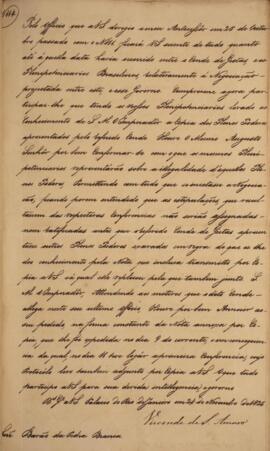 Pelo Officio que a VS dirigio a meu Antecessor em 20 de Outubro
passado com o Nº ficará VS sciente de tudo quanto
até áquella data havia ocorrido entre o Conde de Gestas e os
Plenipotenciarios Brasileiros relativamente á Negociação
projectada entre este, e esse Governo. Cumpre-me agora par-
ticipar-lhe que tendo os ditos Plenipotenciarios levado ao
Conhecimento de S. M. O Imperador a Copia dos Plenos Poderes
apresentados pelo referido Conde Houve O Mesmo Augusto
Senhor por bem Conformar-se com o que os mesmos Pleni-
potenciarios representarão sobre a illegalidade d'aquelles Ple-
nos Poderes, Permittindo com tudo que se encetasse a Negocia-
ção, ficando porem entendido que as estipulações que resul-
tassem das respectivas conferencias não serião assignadas
nem ratificadas antes que o referido Conde de Gestas apresen-
tasse outros Plenos Poderes exarados em regra do que se lhe
deo conhecimento pela Nota que inclusa transmitto por Co-
pia a VS á qual elle replicou pela que tambem junto. S.
M. O Imperador, Attendendo aos motivos que o dito Conde
allega neste seu ultimo Officio Houve por bem Annuir ao
seu pedido na forma constante da Nota annexa por Co-
pia, que lhe foi expedida no dia 9 do corrente, e em consequen-
cia da qual no dia 11 teve lugar a primeira Conferencia, cujo
Protocolo levo tambem adjunto por Copia a VS O que tudo
participo a VS para sua devida intelligencia, e governo
Ds Gde a VS Palacio do Rio de Janeiro em 24 de Novembro de 1825
Visconde de S. Amaro
Snr Barão da Pedra Branca